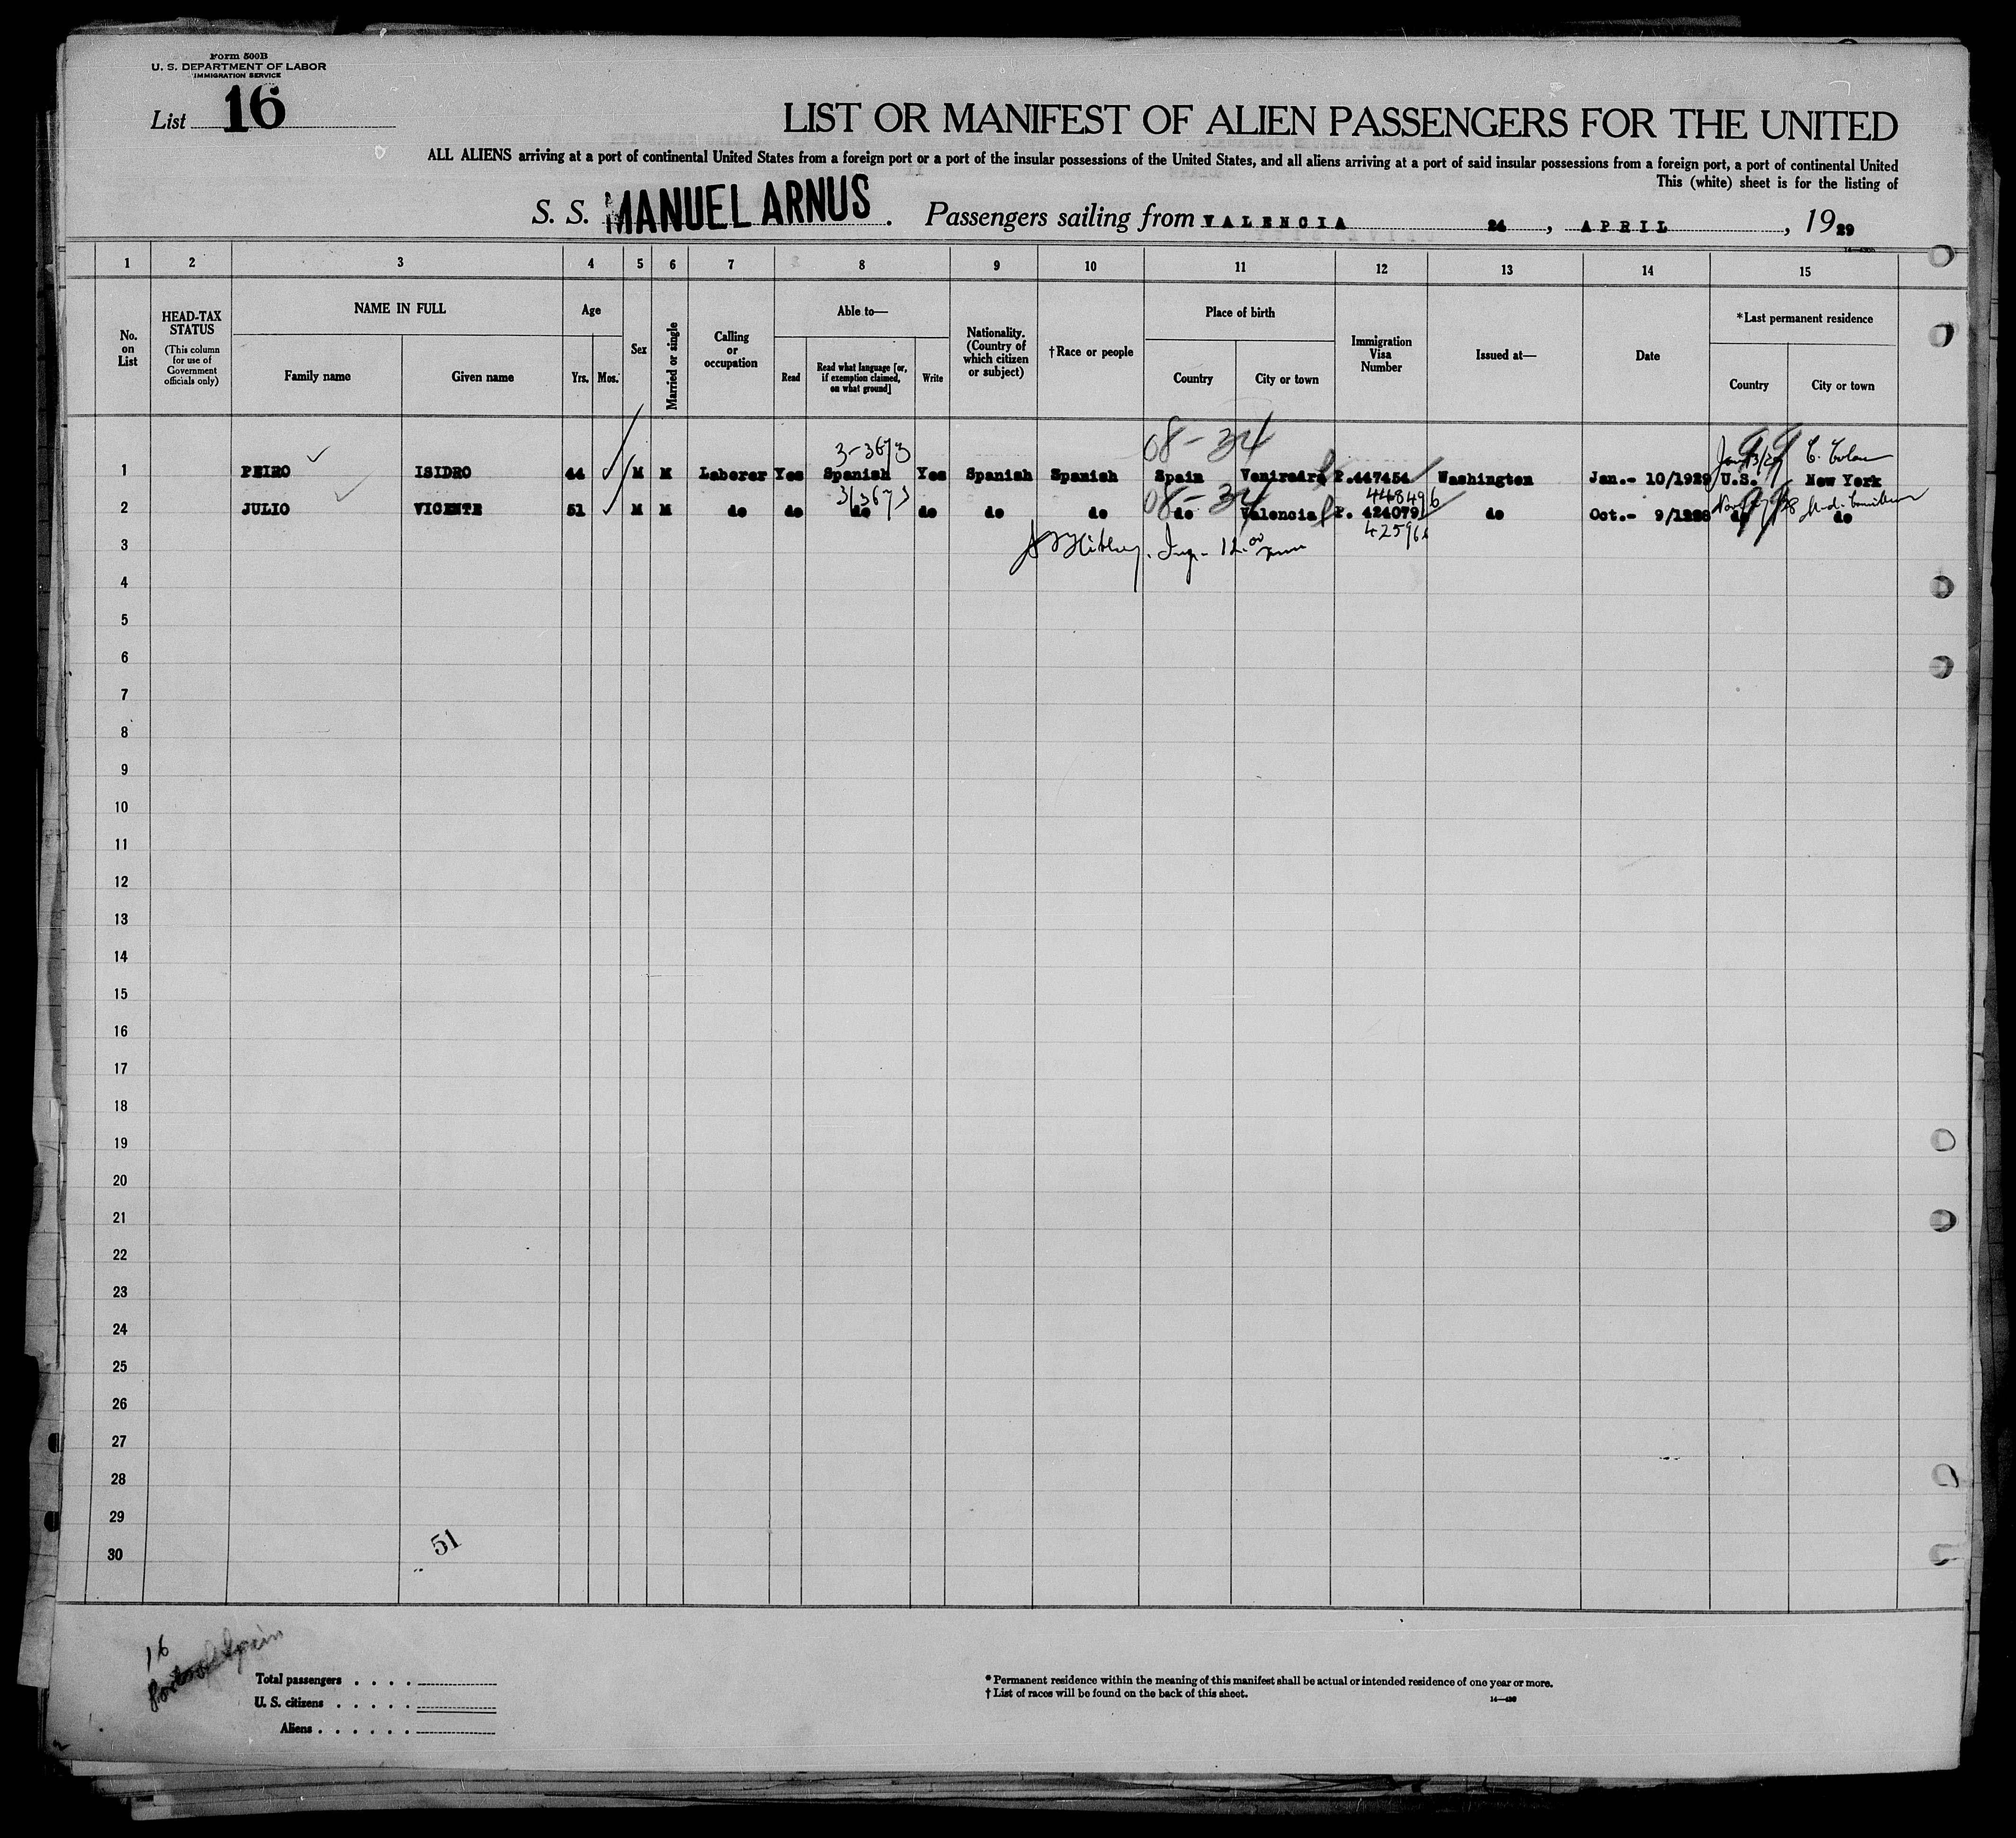 Form 500B
U. S. DEPARTMENT OF LABOR
IMMIGRATION SERVICE
List 16
LIST OR MANIFEST OF ALIEN PASSENGERS FOR THE UNITED
ALL ALIENS arriving at a port of continental United States from a foreign port or a port of the insular possessions of the United States, and all aliens arriving at a port of said insular possessions from a foreign port, a port of continental United
This (white) sheet is for the listing of
S. S. MANUEL ARNUS. Passengers sailing from VALENCIA 24, APRIL, 1929
1 2 3 4 5 6 7 8 9 10 11 12 13 14 15
No. on List
HEAD-TAX STATUS
(This column for use of Government officials only)
NAME IN FULL
Family name
Given name
Age
Yrs. Mos.
Sex
Married or single
Calling or occupation
Able to—
Read
Read what language [or, if exemption claimed, on what ground]
Write
Nationality. (Country of which citizen or subject)
†Race or people
Place of birth
Country
City or town
Immigration Visa Number
Issued at—
Date
*Last permanent residence
Country
City or town
3-3673
08-34
1 PEIRO ISIDRO 44 M M Laborer Yes Spanish Yes Spanish Spanish Spain P.447454 Washington Jan.- 10/1929 U.S. New York
3/3673
08-34
448496
2 JULIO VICENTE 51 M M do do do do do do do Valencia P. 424079 do Oct.- 9/1928 do do
3
4
5
6
7
8
9
10
11
12
13
14
15
16
17
18
19
20
21
22
23
24
25
26
27
28
29
30
51
16
Total passengers . . . .
U. S. citizens . . . . .
Aliens . . . . . .
* Permanent residence within the meaning of this manifest shall be actual or intended residence of one year or more.
† List of races will be found on the back of this sheet.